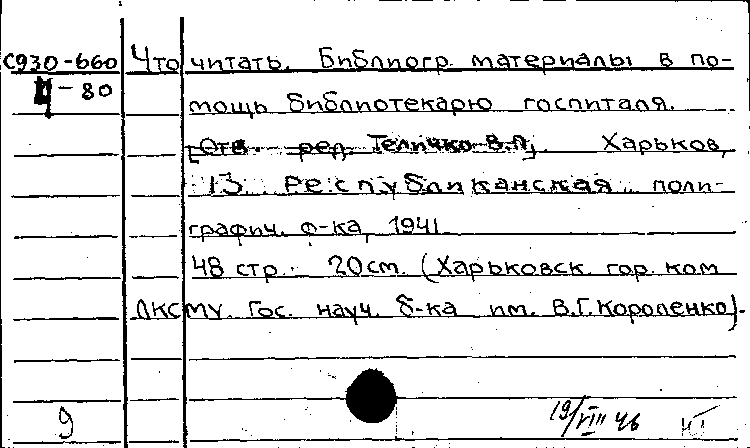 С930-660 Что читать. Библиогр. материалы в по-
-80 мощь библиотекарю госпиталя.
[Отв. ред. Теличко В.П]. Харьков,
13 Республиканская поли-
графич. ф-ка, 1941
48 стр. 20см. (Харьковск. гор. ком
ЛКСМУ. Гос. науч. б-ка им. В.Г. Короленко).
9 19/VIII 46